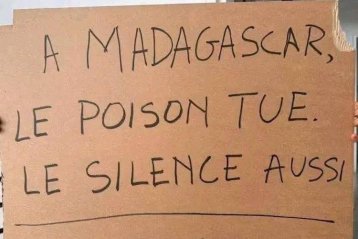 A MADAGASCAR,
LE POISON TUE.
LE SILENCE AUSSI